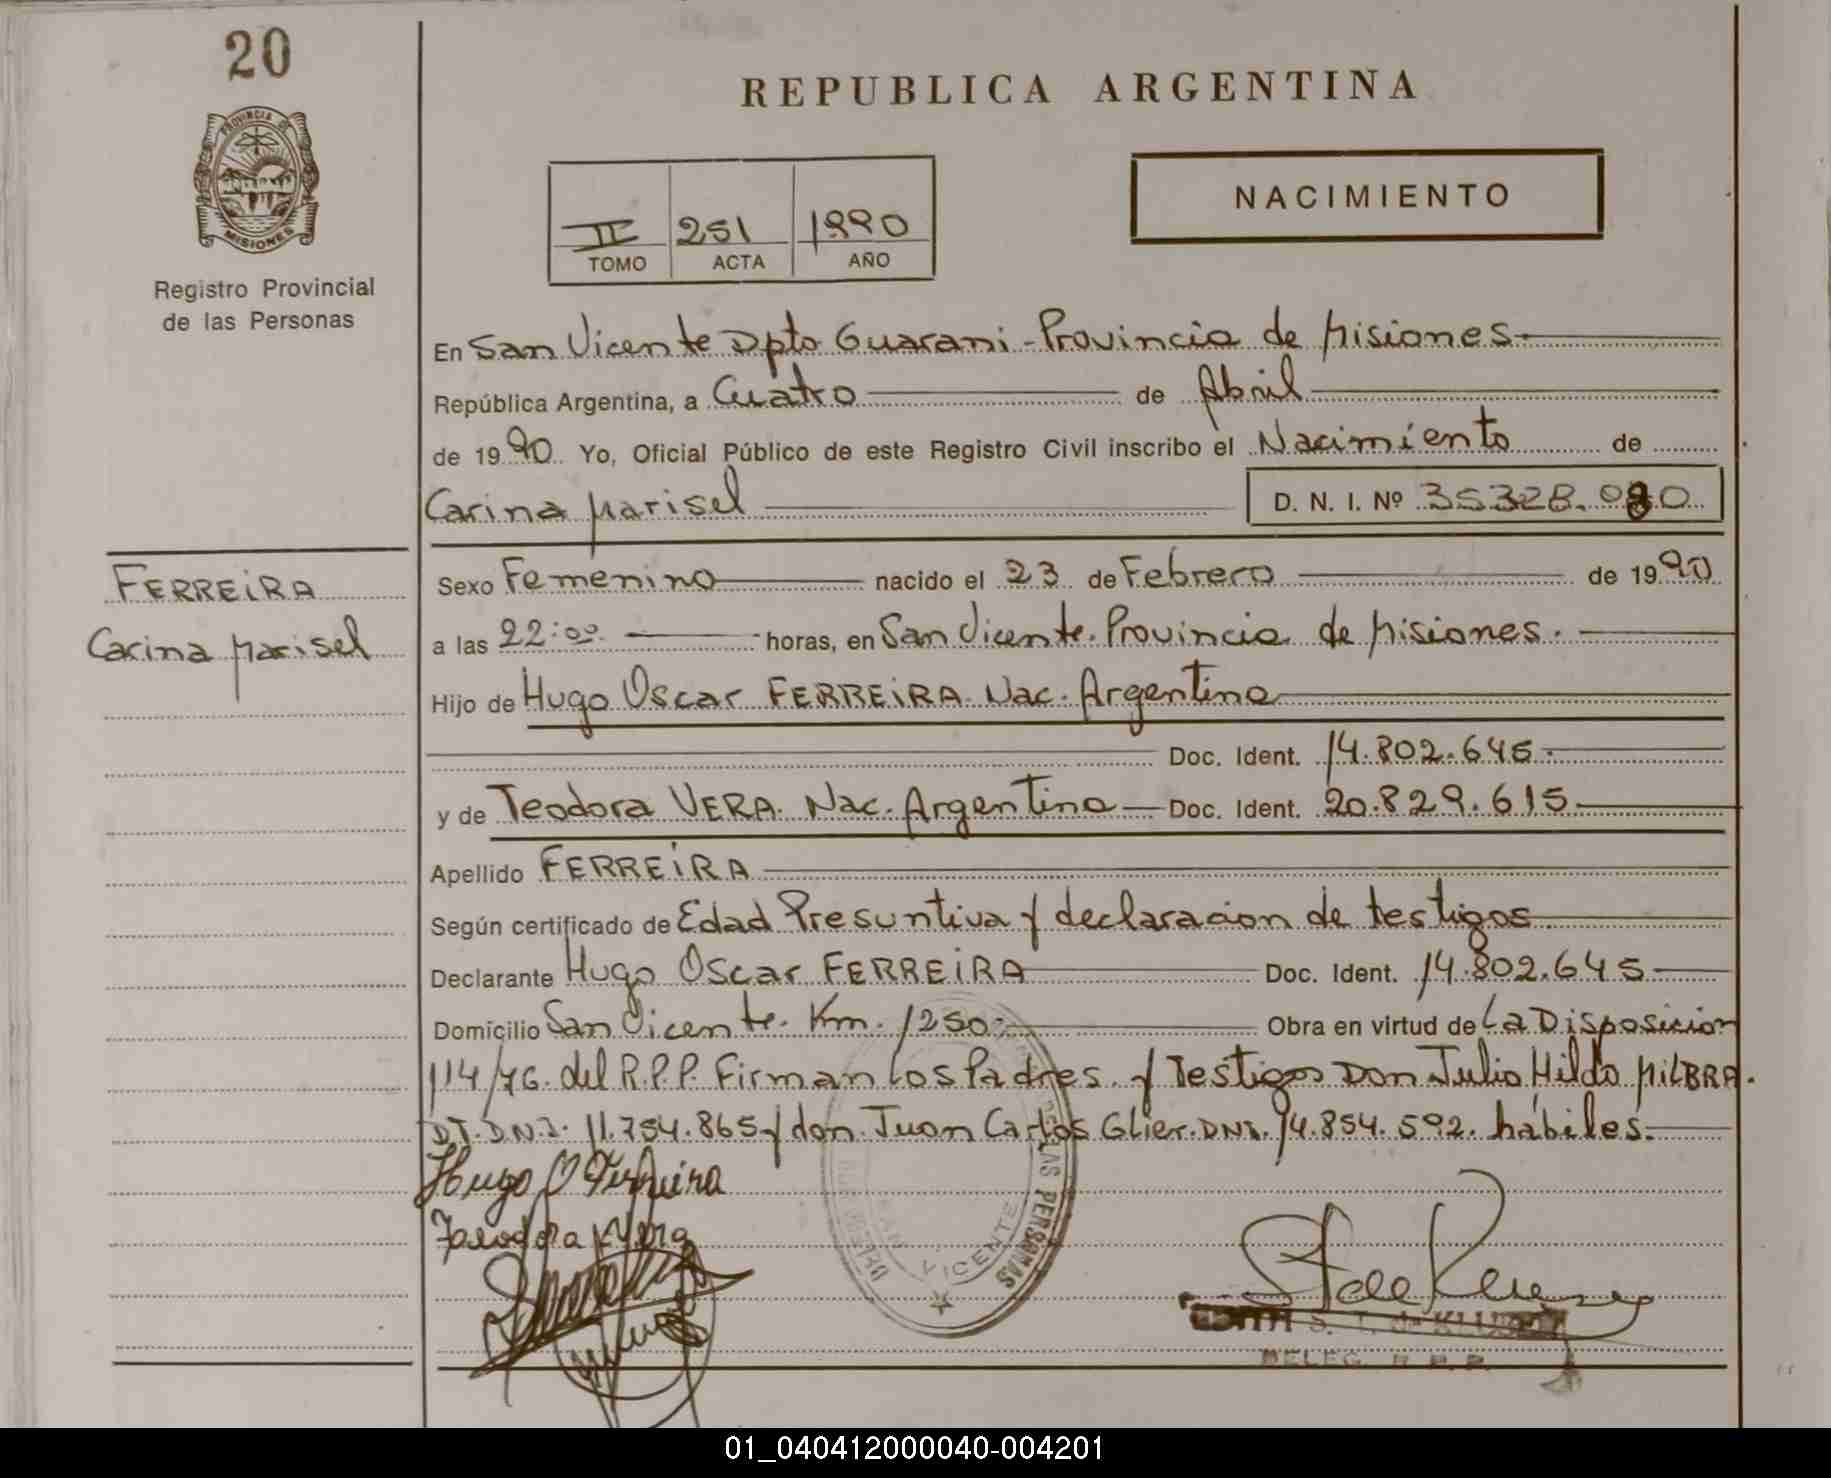 20
REPUBLICA ARGENTINA
PROVINCIA DE
MISIONES
Registro Provincial
de las Personas
NACIMIENTO
II 251 1990
TOMO ACTA AÑO
En San Vicente Dpto Guarani - Provincia de Misiones
República Argentina, a Cuatro de Abril
de 1990 Yo, Oficial Público de este Registro Civil inscribo el Nacimiento de
Carina Marisel D. N. I. Nº 35328.080
FERREIRA
Carina Marisel
Sexo Femenino nacido el 23 de Febrero de 1990
a las 22:00 horas, en San Vicente. Provincia de Misiones.
Hijo de Hugo Oscar FERREIRA. Nac. Argentina
Doc. Ident. 14.802.645.
y de Teodora VERA. Nac. Argentina Doc. Ident. 20.829.615
Apellido FERREIRA
Según certificado de Edad Presuntiva y declaracion de testigos
Declarante Hugo Oscar FERREIRA Doc. Ident. 14.802.645
Domicilio San Vicente. Km. 1250. Obra en virtud de La Disposicion
114/76. del R.P.P. Firman los Padres y Testigos Don Julio Hildo MILBRA.
DT. D.N.I. 11.754.865 y don Juan Carlos Glier. DNI. 14.854.592. hábiles.
Hugo O Ferreira
Teodora Vera
DE LAS PERSONAS
SAN VICENTE
DELEG. R. P. P.
01_040412000040-004201